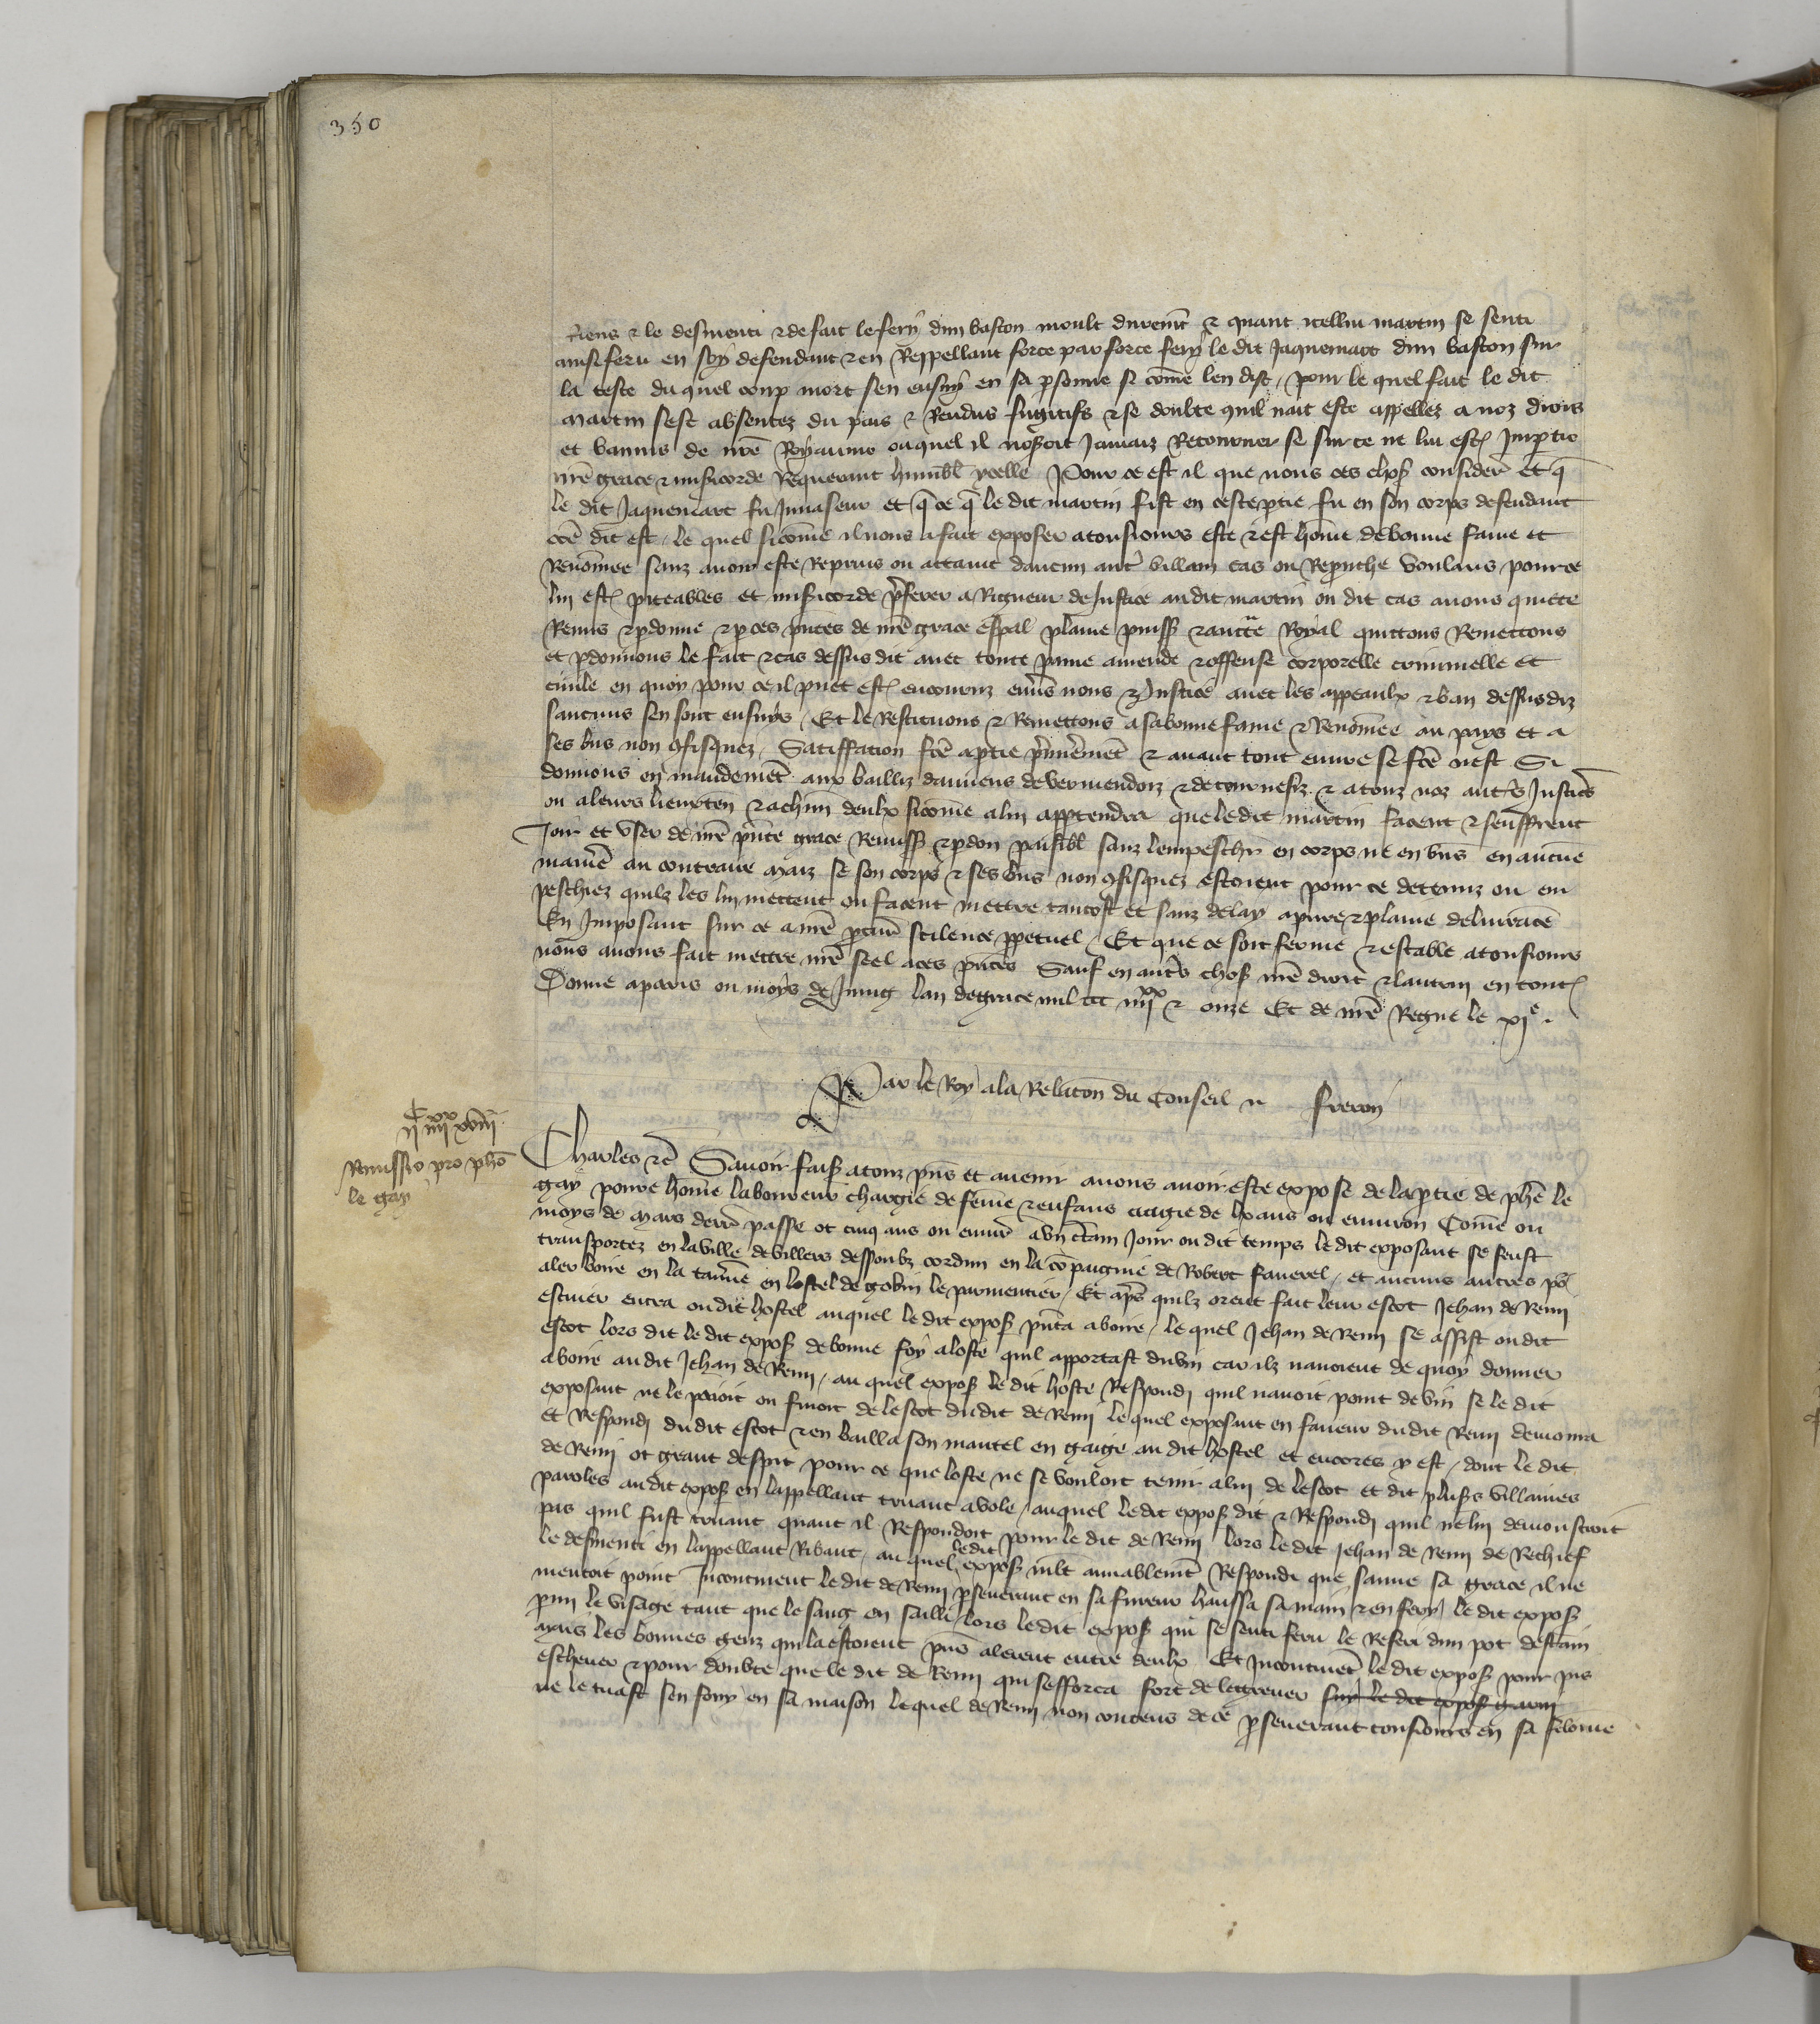 350
riens & le desmenti & de fait le fery dun baston moult duremt & quant icellui martin se senti
ainsi feru en soy defendant & en Reppellant force par force fery le dit Jaquemart dun baston sur
la teste du quel coup mort sen ensuy en sa psonne si cōme len dist / pour le quel fait le dit
Martin sest absentez du pais & Rendus fugitifs & se doubte quil nait este appellez a noz drois
et bannis de nrē Royaume ouquel il noseroit Jamaiz Retourner se sur ce ne lui estoit Impartie
nrē grace & misicorde Requerant humbl ycelle Pour ce est il que nous ces chos considere et q̄
le dit Jaquemart fu Invaseur et q̄ ce q̄ le dit martin fist en ceste ptie fu en son corps defendant
cōe dit est / le quel si cōme il nous a fait exposer a tousiours este & est hōme de bonne fame et
Renōmee sanz avoir este Reprins ou attaint daucun autr villain cas ou Reprouche voulans pour ce
lui estre piteables et misicorde pferer a Rigueur de Justice au dit martin ou dit cas avons quicte
Remis & pdonne & p ces pntes de nrē grace espal plaine puiss & auctte Royal quittons Remettons
et pdonnons le fait & cas dessus dit avec toute paine amende & offense corporelle criminelle et
civile en quoy pour ce il puet estre encouruz envers nous & Justice avec les appeaulx & ban dessus diz
saucuns sen sont ensuys / Et le Restituons & Remettons a sa bonne fame & Renōmee au pays et a
ses bns non 9fisquez / Satiffation fcē a ptie pmieremt & avant tout euvre se fcē nest Si
donnons en mandemēt aux bailliz damiens de vermendoiz & de tournesiz & a touz noz autrs Justics
ou a leurs lieuxten & a chūn deulx si cōme a lui apptendra que le dit martin facent & seuffrent
Joir et user de nrē pnte grace Remiss & pdon paisibl sanz lempeschr en corps ne en bns en aucune
manie au contraire Maiz se son corps & ses bns non 9fisquez estoient pour ce detenuz ou em
peschiez quilz les lui mettent ou facent mettre tantost et sanz delay a pure & plaine delivrāce
En Imposant sur ce a nrē pcur scilence ppetuel / Et que ce soit ferme & estable a tousiours
nous avons fait mettre nrē seel a ces pntes Sauf en autrs chos nrē droit & lautrui en toutes
Donne a paris ou moys de Juing lan de grace mil ccc iiiixx & onze Et de nrē Regne le xie.
Par le Roy a la Relacōn du Conseil n freron
iic iiiixx xviii
Remissio pro phō
le gay
Charles &c Savoir faiss a touz pns et avenir avons avoir este expose de la ptie de phē le
gay povre hōme laboureur chargie de feme & enfans eagie de lx ans ou environ Cōme ou
moys de Mars derr passe ot cinq ans ou envir a un ctain Jour ou dit temps le dit exposant se feust
transportez en la ville de villers dessoubz cordun en la cōpaignie de Robert favevel / et aucuns autres po
aler boire en la tavne en lostel de gobin le parmentier / Et aps quilz orent fait leur escot Jehan de Remi
escuier entra ou dit hostel auquel le dit expos pnta a boire / le quel Jehan de Remi se assist ou dit
escot lors dit le dit expos de bonne foy a loste quil apportast du vin car ilz navoient de quoy donner
a boire au dit Jehan de Remi / au quel expos le dit hoste Respondi quil navoit point de vin se le dit
exposant ne le paioit ou finoit de lescot du dit de Remi le quel exposant en faveur du dit Remi demoura
et Respondi du dit escot & en bailla son mantel en gaige au dit hostel et encores y est / dont le dit
de Remi ot grant despit pour ce que loste ne se vouloit tenir a lui de lescot et dit pluss villaines
paroles au dit expos en lappellant truant avole / auquel le dit expos dit & Respondi quil ne lui demonstroit
pas quil fust truant quant il Respondoit pour le dit de Remi lors le dit Jehan de Remi de Rechief
le desmenti en lappellant Ribaut / au quel le dit expos mlt amiablemt Respondi que sauve sa grace il ne
mentoit point Incontinent le dit de Remi pseverant en sa fureur haussa sa main & en fery le dit expos
pmi le visage tant que le sang en sailli / lors le dit expos qui se senti feru le Referi dun pot destain
Mais les bonnes genz qui la estoient pns alerent entre deulx Et Incontinēt le dit expos pour pis
eschever & pour doubte que le dit de Remi qui sefforca fort de le grever sur le dit expos garni
ne le tuast sen fouy en sa maison lequel de Remi non contens de ce pseverant tousiours en sa felonie